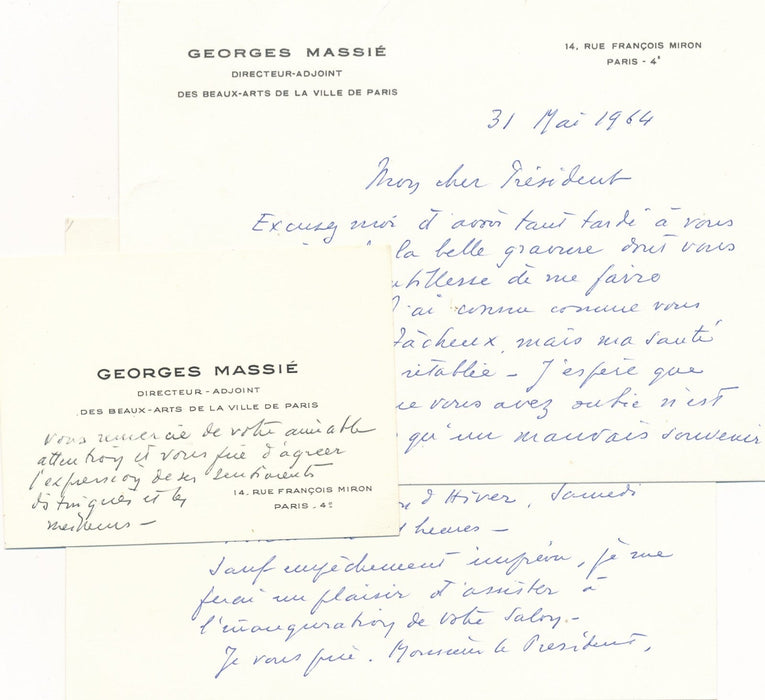 GEORGES MASSIÉ
DIRECTEUR-ADJOINT
DES BEAUX-ARTS DE LA VILLE DE PARIS
14, RUE FRANÇOIS MIRON
PARIS - 4ᵉ
31 Mai 1964
Mon cher Président
Excusez moi d'avoir tant tardé à vous
la belle gravure dont vous
de me faire
J'ai connu comme vous
fâcheux, mais ma santé
rétablie - J'espère que
vous avez subie n'est
qu'un mauvais souvenir
GEORGES MASSIÉ
DIRECTEUR-ADJOINT
DES BEAUX-ARTS DE LA VILLE DE PARIS
vous remercie de votre aimable
attention et vous prie d'agréer
l'expression de ses sentiments
distingués et les
meilleurs -
14, RUE FRANÇOIS MIRON
PARIS - 4ᵉ
d'Hiver, Samedi
heures -
Sauf empêchement imprévu, je me
ferai un plaisir d'assister à
l'inauguration de votre Salon -
Je vous prie, Monsieur le Président,